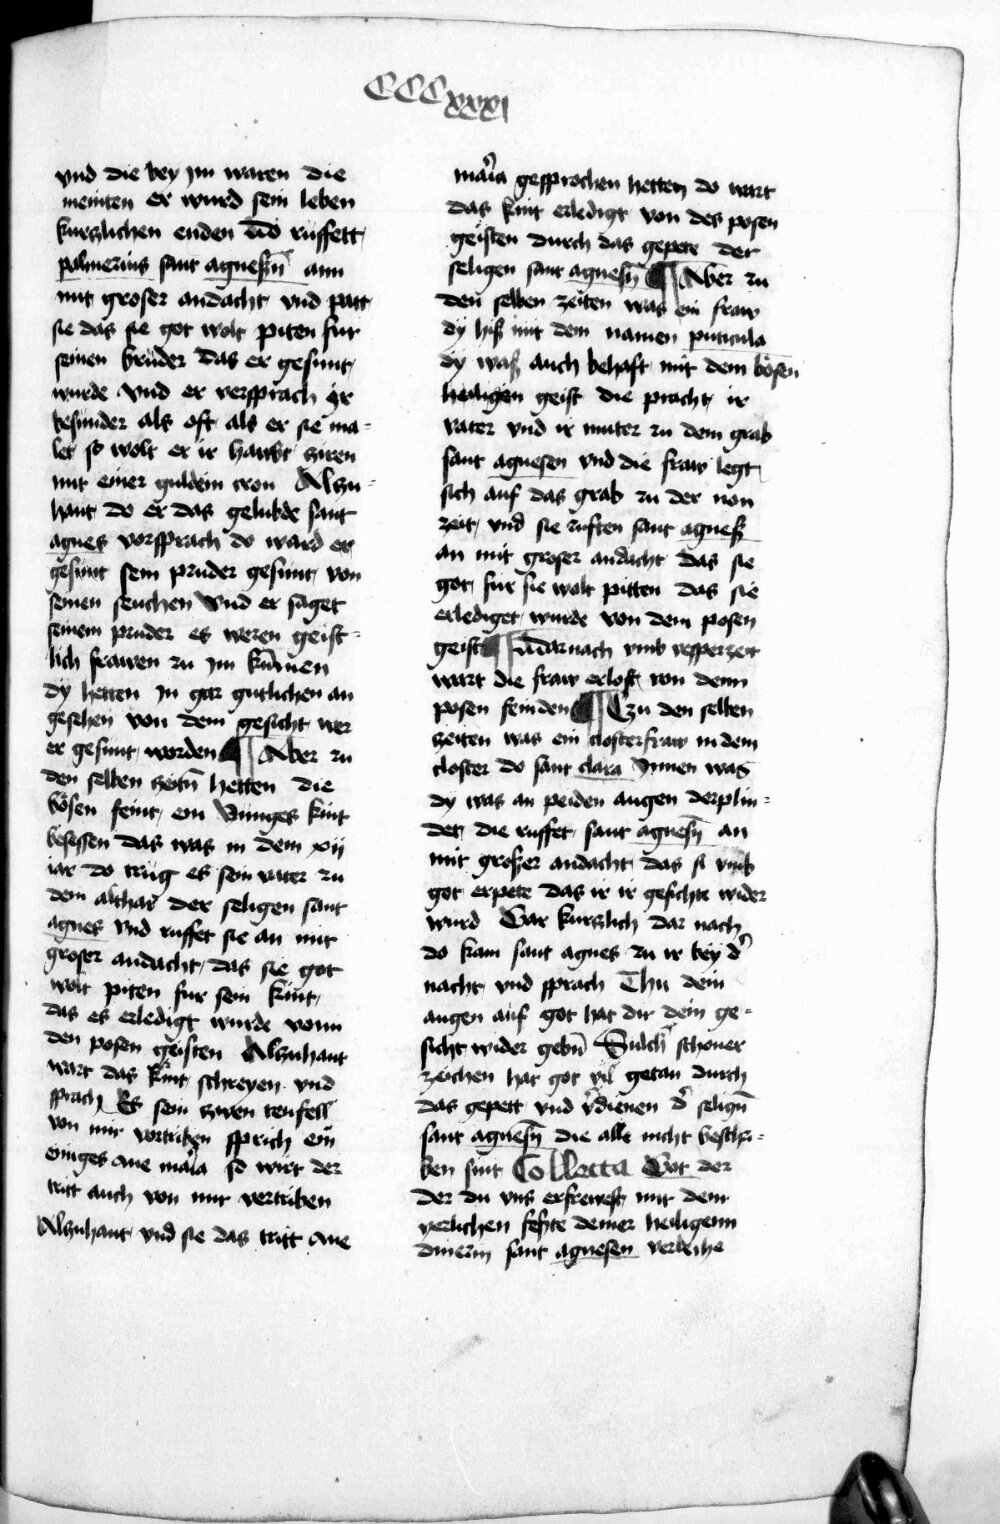 CCCxxxj
vnd die bey jm waren die
meinten er wurd sein leben
kurczlichen enden Vnd ruffett
palmerius sant agneszn̄ ann
mit groser andacht vnd patt
sie das sie got wolt piten fur
seinen bruder das er gesunt
wurde vnd er versprach ir
besunder als oft als er sie ma-
let so wolt er ir haubt ziren
mit einer guldein cron Alzu-
hant do er das gelubde sant
agnes vorsprach do ward er
gesunt sein pruder gesunt von
seinen seuchen Vnd er saget
seinem pruder es weren geist-
lich frawen zu jm kūmen
dy hetten jn gar gutlichen an
gesehen von dem gesicht wer
er gesunt worden ¶ Aber zu
den selben zeitn̄ hetten die
bösen feint ein iunges kint
besessen das was in dem xij
iar do trug es sein vater zu
dem althar der seligen sant
agnes vnd ruffet sie an mit
groser andacht das sie got
wolt piten fur sein kint
das es erledigt wurde vonn
den posen geisten Alzuhant
wart das kint schreyen vnd
sprach Es sein zwen teufell
von mir vortriben sprich ein
einiges aue maria so wirt der
tritt auch von mir vertriben
Alzuhant vnd sie das tritt aue
maria gesprochen hetten do wart
das kint erledigt von des posen
geisten durch das gepete der
seligen sant agnesn̄ ¶ Aber zu
den selben zeiten was ein fraw
dy hisz mit dem namen puticula
dy wasz auch behaft mit dem bösen
heiligen geist die pracht ir
vater vnd ir muter zu dem grab
sant agnesen vnd die fraw legt
sich auf das grab zu der non
zeit vnd sie ruften sant agnesz
an mit groser andacht das sie
got fur sie wolt pitten das sie
erlediget wurde von dem posen
geist ¶ Darnach vmb vesperzeit
wart die fraw erlost von denn
posen feinden ¶ Czu den selben
zeiten was ein closterfraw in dem
closter do sant clara jnnen was
dy was an peiden augen derplin-
det die ruffet sant agnesn̄ an
mit groszer andacht das si vmb
got erpete das ir ir gesichte wider
wurd Gar kurczlich dar nach
do kam sant agnes zu ir bey d̄
nacht vnd sprach Thu dein
augen auf got hat dir dein ge-
sicht wider gebn̄ Sulch schoner
zeichen hat got vil getan durch
das gepett vnd v̄dienen d̄ selign̄
sant agnesn̄ die alle nicht beschri-
ben sint Collecta Got der
der du vns erfrewest mit dem
yerlichen feste deiner heiligenn
dinerin sant agnesen verleihe